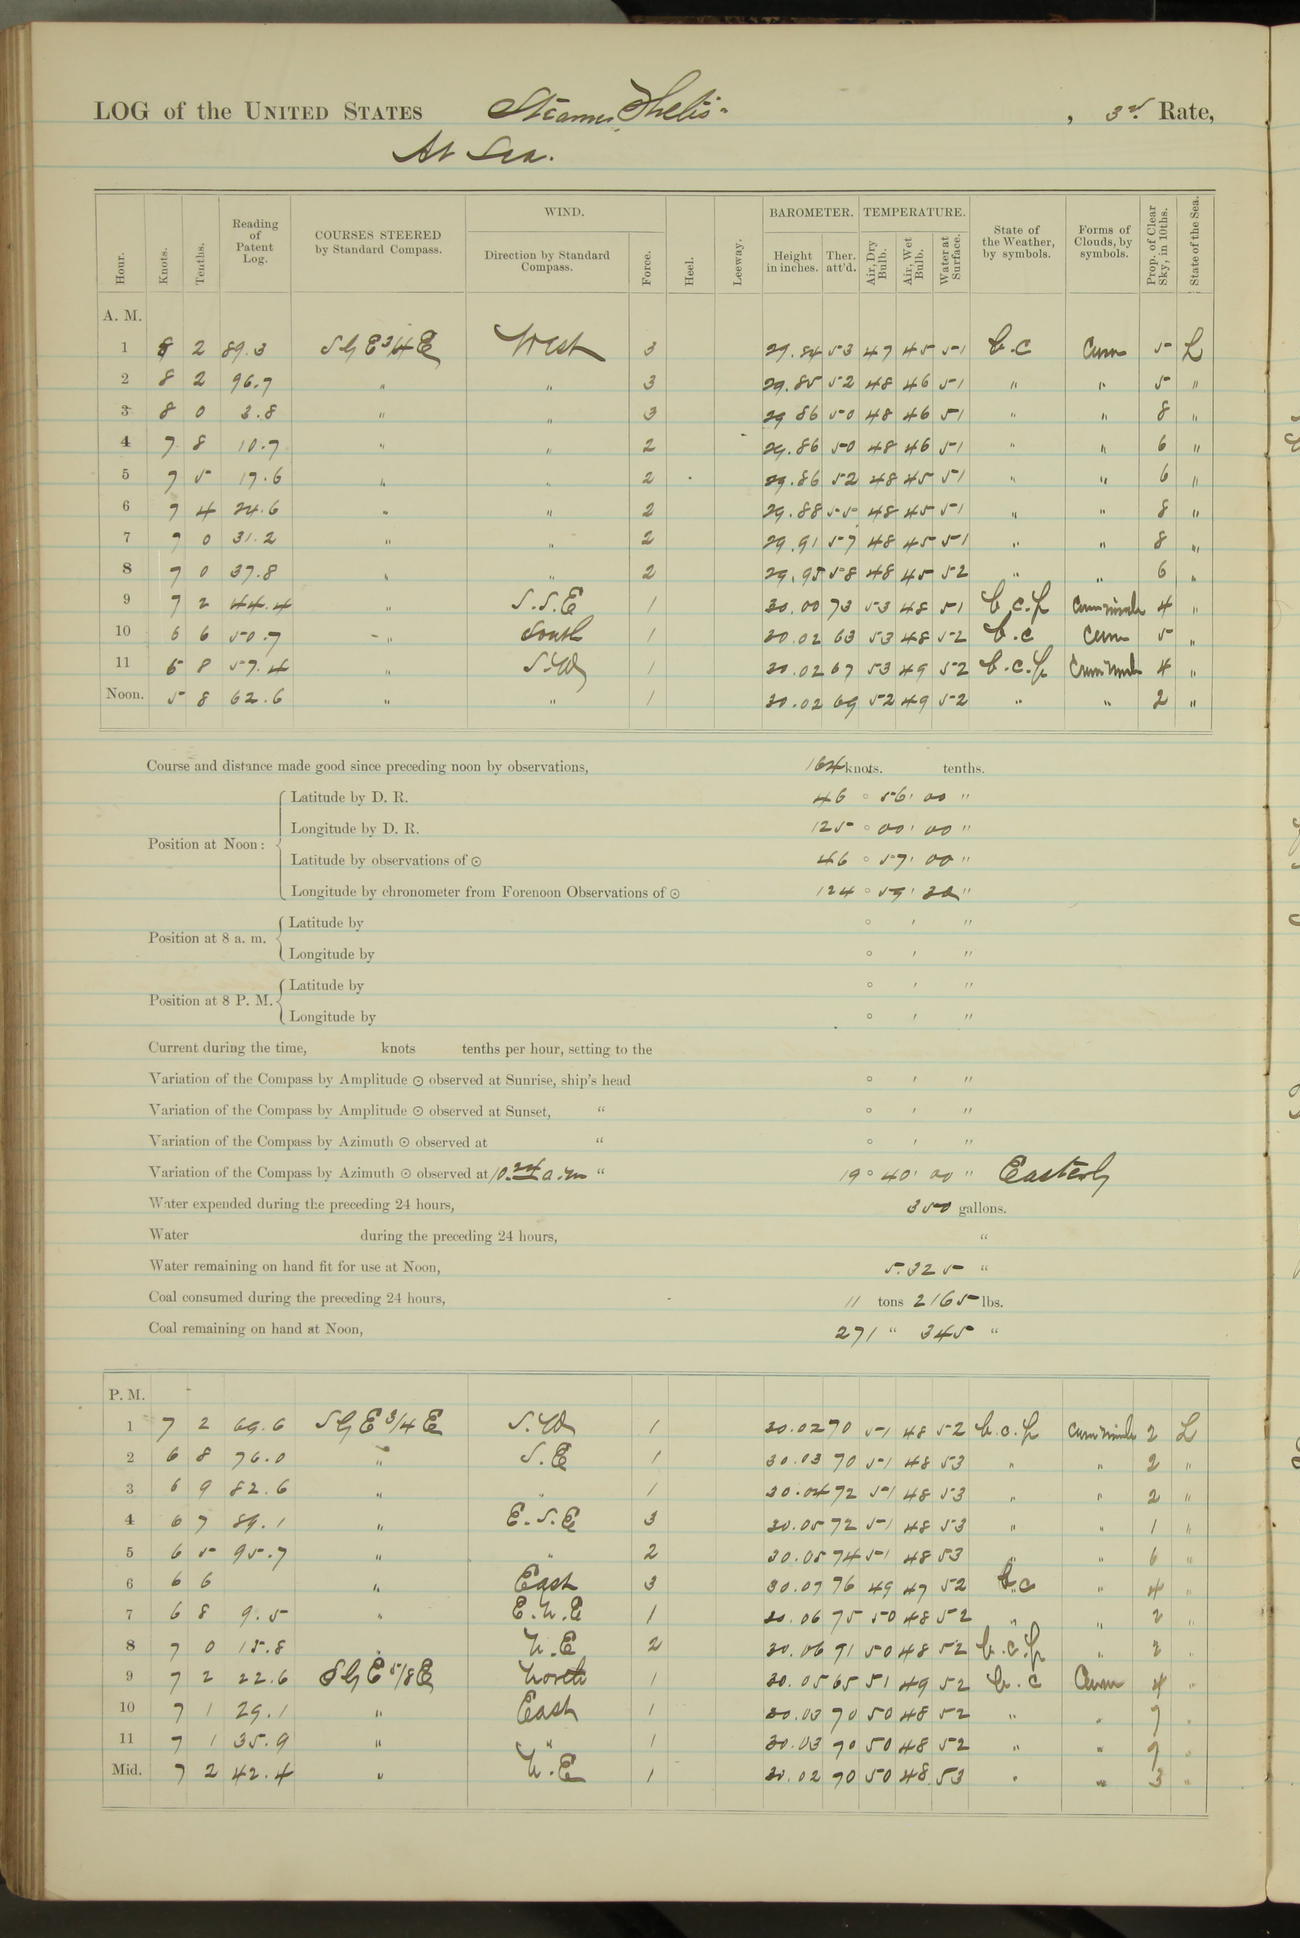 LOG of the UNITED STATES Steamer Thetis , 3rd Rate,
At Sea.
Hour. Knots. Tenths. Reading of Patent Log. COURSES STEERED by Standard Compass. WIND. Direction by Standard Compass. Force. Heel. Leeway. BAROMETER. Height in inches. Ther. att'd. TEMPERATURE. Air, Dry Bulb. Air, Wet Bulb. Water at Surface. State of the Weather, by symbols. Forms of Clouds, by symbols. Prop. of Clear Sky, in 10ths. State of the Sea.
A. M.
1 8 2 89.3 S by E 3/4 E West 3 29.84 53 47 45 51 b.c Cum 5 L
2 8 2 96.7 " " 3 29.85 52 48 46 51 " " 5 "
3 8 0 3.8 " " 3 29 86 50 48 46 51 " " 8 "
4 7 8 10.7 " " 2 29.86 50 48 46 51 " " 6 "
5 7 5 17.6 " " 2 29.86 52 48 45 51 " " 6 "
6 7 4 24.6 " " 2 29.88 55 48 45 51 " " 8 "
7 7 0 31.2 " " 2 29.91 57 48 45 51 " " 8 "
8 7 0 37.8 " " 2 29.95 58 48 45 52 " " 6 "
9 7 2 44.4 " S.S.E 1 30.00 73 53 48 51 b.c.p 4 "
10 6 6 50.7 " South 1 30.02 63 53 48 52 b.c Cum 5 "
11 6 8 57.4 " S.W 1 30.02 67 53 49 52 b.c.p 4 "
Noon. 5 8 62.6 " " 1 30.02 69 52 49 52 " " 2 "
Course and distance made good since preceding noon by observations, 164 knots. tenths.
Position at Noon:
Latitude by D. R. 46 ° 56' 00 "
Longitude by D. R. 125 ° 00' 00 "
Latitude by observations of ☉ 46 ° 57' 00 "
Longitude by chronometer from Forenoon Observations of ☉ 124 ° 59' 30 "
Position at 8 a. m.
Latitude by ° ' "
Longitude by ° ' "
Position at 8 P. M.
Latitude by ° ' "
Longitude by ° ' "
Current during the time, knots tenths per hour, setting to the
Variation of the Compass by Amplitude ☉ observed at Sunrise, ship's head ° ' "
Variation of the Compass by Amplitude ☉ observed at Sunset, " ° ' "
Variation of the Compass by Azimuth ☉ observed at " ° ' "
Variation of the Compass by Azimuth ☉ observed at 10.24 a.m " 19 ° 40' 00 " Easterly
Water expended during the preceding 24 hours, 350 gallons.
Water during the preceding 24 hours, "
Water remaining on hand fit for use at Noon, 5.325 "
Coal consumed during the preceding 24 hours, 11 tons 2165 lbs.
Coal remaining on hand at Noon, 271 " 345 "
P. M.
1 7 2 69.6 S by E 3/4 E S.W 1 30.02 70 51 48 52 b.c.p 2 L
2 6 8 76.0 " S.E 1 30.03 70 51 48 53 " " 2 "
3 6 9 82.6 " " 1 30.04 72 51 48 53 " " 2 "
4 6 7 89.1 " E.S.E 3 30.05 72 51 48 53 " " 1 "
5 6 5 95.7 " " 2 30.05 74 51 48 53 " " 6 "
6 6 6 " East 3 30.07 76 49 47 52 b.c " 4 "
7 6 8 9.5 " E.N.E 1 30.06 75 50 48 52 " " 2 "
8 7 0 15.8 " N.E 2 30.06 71 50 48 52 b.c.p " 2 "
9 7 2 22.6 S by E 5/8 E North 1 30.05 65 51 49 52 b.c Cum 4 "
10 7 1 29.1 " East 1 30.03 70 50 48 52 " " 7 "
11 7 1 35.9 " " 1 30.03 70 50 48 52 " " 7 "
Mid. 7 2 42.4 " N.E 1 30.02 70 50 48 53 " " 3 "